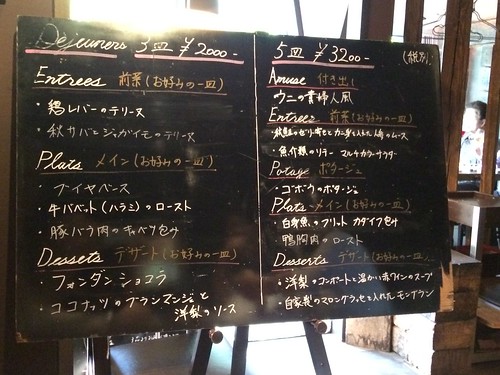 Déjeuners 3皿 ¥2000-
Entrees 前菜(お好みの一皿)
・鶏レバーのテリーヌ
・秋サバとジャガイモのテリーヌ
Plats メイン(お好みの一皿)
・ブイヤベース
・牛バベット(ハラミ)のロースト
・豚バラ肉のキャベツ包み
Dessets デザート(お好みの一皿)
・フォンダンショコラ
・ココナッツのブランマンジェと
洋梨のソース
5皿 ¥3200- (税別)
Amuse 付き出し
ウニの貴婦人風
Entrees 前菜(お好みの一皿)
のムース
・魚介類のリテー マルチカラーサラダ
Potage ポタージュ
・ゴボウのポタージュ
Plats メイン(お好みの一皿)
・白身魚のフリット カダイフ包み
鴨胸肉のロースト
Desserts デザート(お好みの一皿)
・洋梨のコンポートと温かい赤ワインのスープ
・自家製のマロングラッセを入れたモンブラン